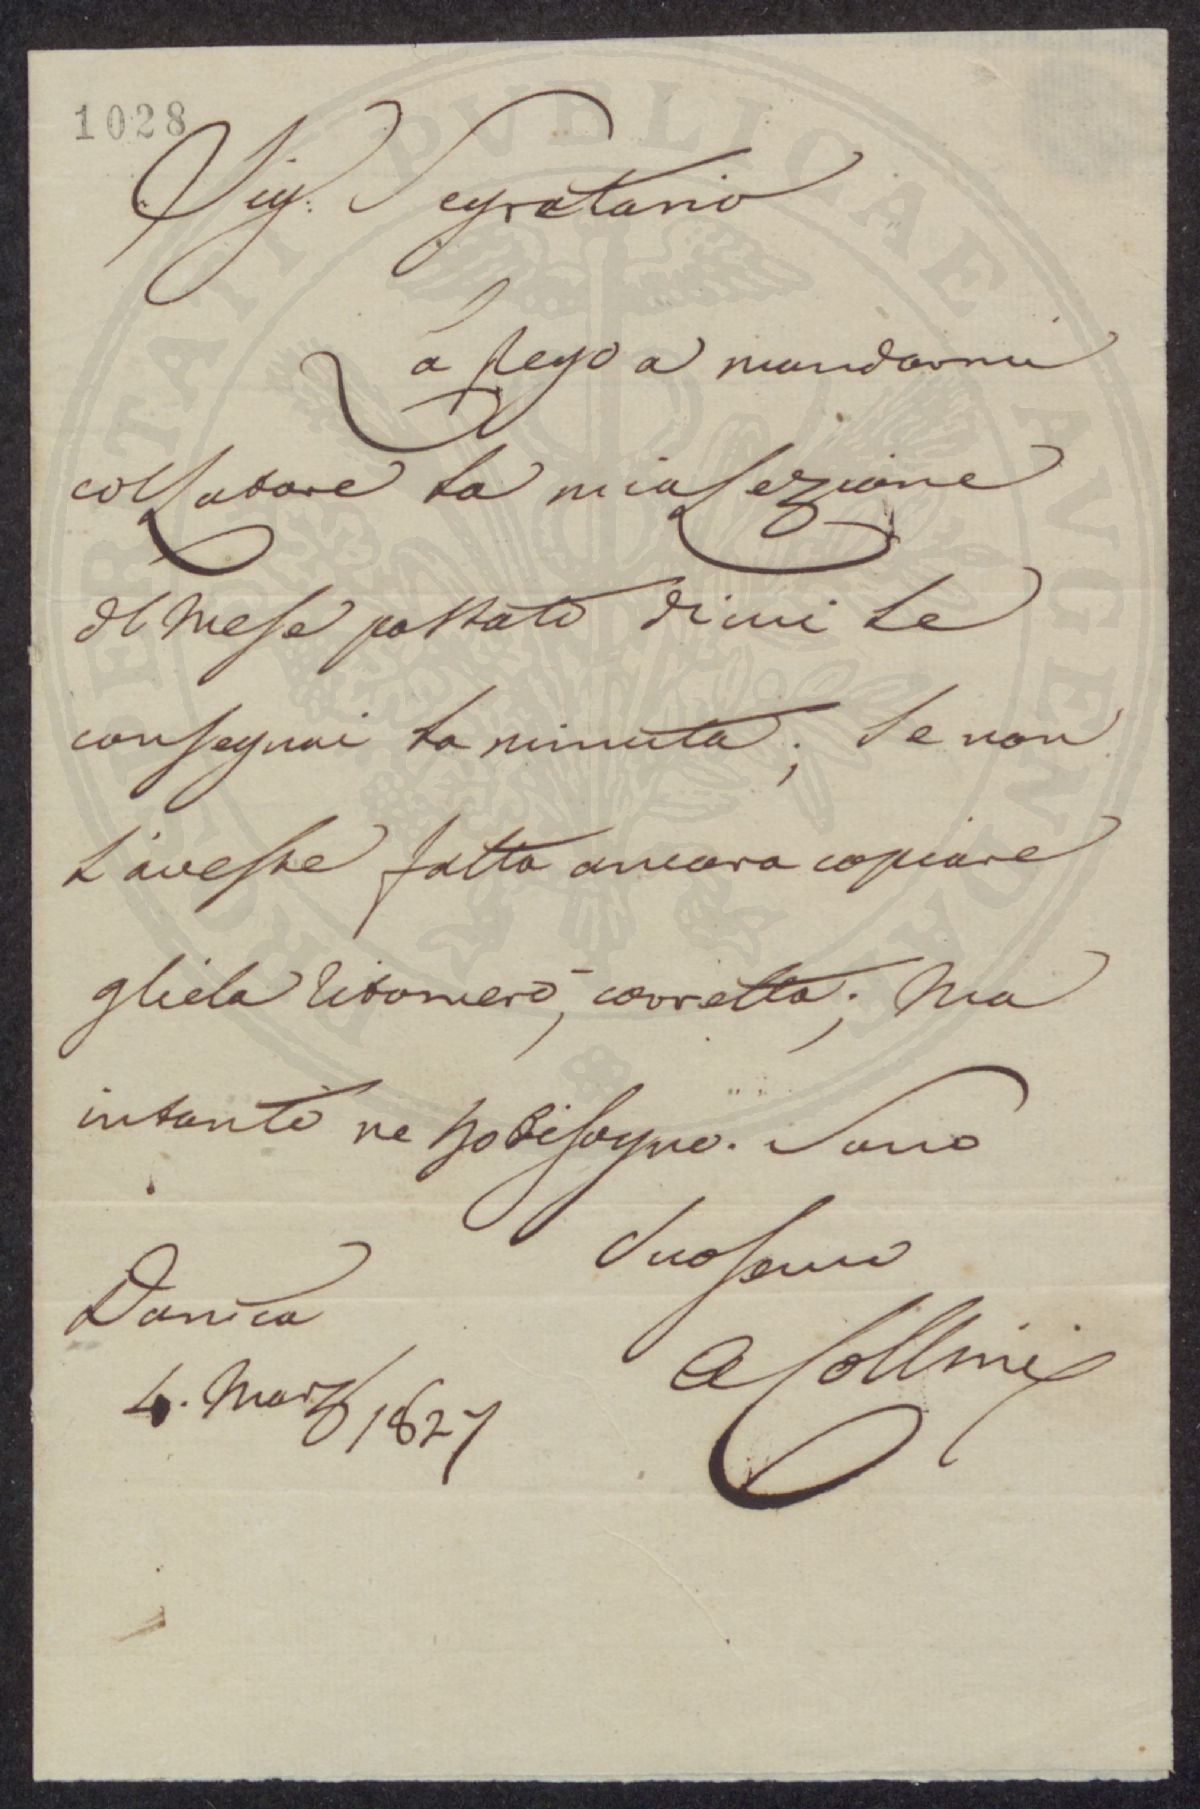 1028
Sig. Segretario
La prego a mandarmi
col Latore la mia Lezione
del Mese passato di cui le
consegnai la minuta; Se non
l'avesse fatta ancora copiare
gliela ritornerò, corretta; Ma
intanto ne ho bisogno. Sono
Suo Servo
Domca
4. Marzo 1827
A Collini
PERTATI PVBLICAE AVGENDAE